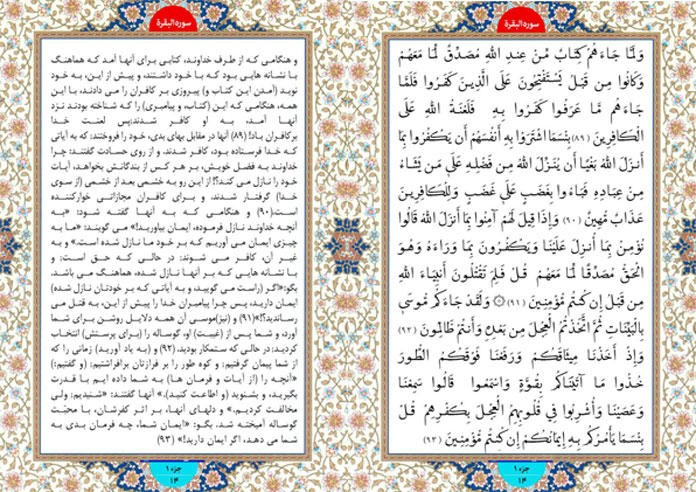 سورة البقرة
وَلَمَّا جَاءَهُمْ كِتَابٌ مِّنْ عِندِ اللَّهِ مُصَدِّقٌ لِّمَا مَعَهُمْ
وَكَانُوا مِن قَبْلُ يَسْتَفْتِحُونَ عَلَى الَّذِينَ كَفَرُوا فَلَمَّا
جَاءَهُم مَّا عَرَفُوا كَفَرُوا بِهِ فَلَعْنَةُ اللَّهِ عَلَى
الْكَافِرِينَ (۸۹) بِئْسَمَا اشْتَرَوْا بِهِ أَنفُسَهُمْ أَن يَكْفُرُوا بِمَا
أَنزَلَ اللَّهُ بَغْيًا أَن يُنَزِّلَ اللَّهُ مِن فَضْلِهِ عَلَى مَن يَشَاءُ
مِنْ عِبَادِهِ فَبَاءُوا بِغَضَبٍ عَلَى غَضَبٍ وَلِلْكَافِرِينَ
عَذَابٌ مُّهِينٌ (۹۰) وَإِذَا قِيلَ لَهُمْ آمِنُوا بِمَا أَنزَلَ اللَّهُ قَالُوا
نُؤْمِنُ بِمَا أُنزِلَ عَلَيْنَا وَيَكْفُرُونَ بِمَا وَرَاءَهُ وَهُوَ
الْحَقُّ مُصَدِّقًا لِّمَا مَعَهُمْ قُلْ فَلِمَ تَقْتُلُونَ أَنبِيَاءَ اللَّهِ
مِن قَبْلُ إِن كُنتُم مُّؤْمِنِينَ (۹۱) ۞ وَلَقَدْ جَاءَكُم مُّوسَى
بِالْبَيِّنَاتِ ثُمَّ اتَّخَذْتُمُ الْعِجْلَ مِن بَعْدِهِ وَأَنتُمْ ظَالِمُونَ (۹۲)
وَإِذْ أَخَذْنَا مِيثَاقَكُمْ وَرَفَعْنَا فَوْقَكُمُ الطُّورَ
خُذُوا مَا آتَيْنَاكُم بِقُوَّةٍ وَاسْمَعُوا قَالُوا سَمِعْنَا
وَعَصَيْنَا وَأُشْرِبُوا فِي قُلُوبِهِمُ الْعِجْلَ بِكُفْرِهِمْ قُلْ
بِئْسَمَا يَأْمُرُكُم بِهِ إِيمَانُكُمْ إِن كُنتُم مُّؤْمِنِينَ (۹۳)
جزء ۱
۱۴
سورة البقرة
و هنگامی که از طرف خداوند، کتابی برای آنها آمد که هماهنگ
با نشانه هایی بود که با خود داشتند، و پیش از این، به خود
نوید (آمدن این کتاب و) پیروزی بر کافران را می دادند، با این
همه، هنگامی که این (کتاب، و پیامبری) را که شناخته بودند نزد
آنها آمد، به او کافر شدند؛پس لعنت خدا
برکافران باد! (۸۹) آنها در مقابل بهای بدی، خود را فروختند؛ که به آیاتی
که خدا فرستاده بود، کافر شدند. و از روی حسادت گفتند: چرا
خداوند به فضل خویش، بر هر کس از بندگانش بخواهد، آیات
خود را نازل می کند؟! از این رو به خشمی بعد از خشمی (از سوی
خدا) گرفتار شدند. و برای کافران مجازاتی خوارکننده
است.(۹۰) و هنگامی که به آنها گفته شود: «به
آنچه خداوند نازل فرموده، ایمان بیاورید!» می گویند: «ما به
چیزی ایمان می آوریم که بر خود ما نازل شده است.» و به
غیر آن، کافر می شوند؛ در حالی که حق است؛ و
با نشانه هایی که بر آنها نازل شده، هماهنگ می باشد.
بگو:«اگر (راست می گویید، و به آیاتی که بر خودتان نازل شده)
ایمان دارید، پس چرا پیامبران خدا را پیش از این، به قتل می
رساندید؟!»(۹۱) و (نیز)موسی آن همه دلایل روشن برای شما
آورد، و شما پس از (غیبت) او، گوساله را (برای پرستش) انتخاب
کردید؛ در حالی که ستمکار بودید. (۹۲) و (به یاد آورید) زمانی را که
از شما پیمان گرفتیم؛ و کوه طور را بر فرازتان برافراشتیم؛ (و گفتیم:)
«آنچه را (از آیات و فرمان ها) به شما داده ایم با قدرت
بگیرید، و بشنوید (و اطاعت کنید).» آنها گفتند: «شنیدیم؛ ولی
مخالفت کردیم.» و دلهای آنها، بر اثر کفرشان، با محبّت
گوساله آمیخته شد. بگو: «ایمان شما، چه فرمان بدی به
شما می دهد، اگر ایمان دارید!» (۹۳)
جزء ۱
۱۴